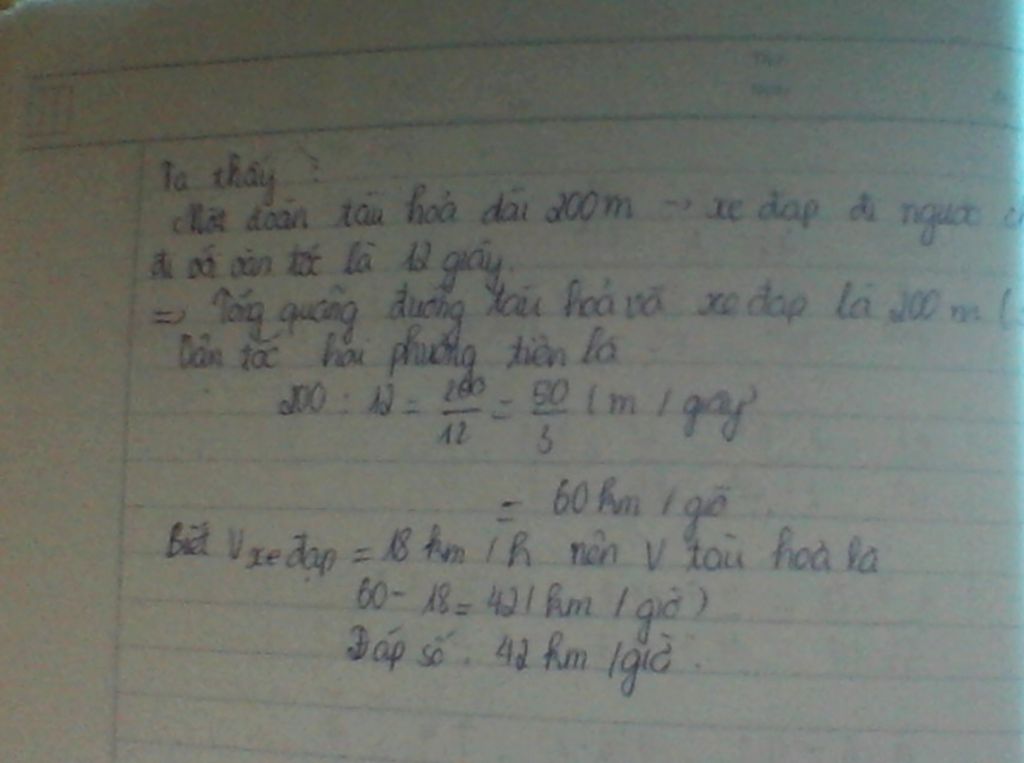 Ta thấy :
Một đoàn tàu hoả dài 200m → xe đạp đi ngược
đi với vận tốc là 12 giây.
=> Tổng quãng đường tàu hoả và xe đạp là 200 m (
Vận tốc hai phương tiện là
200 : 12 = 200/12 = 50/3 (m / giây)
= 60 km / giờ
Biết V xe đạp = 18 km / h nên V tàu hoả là
60 - 18 = 42 ( km / giờ )
Đáp số . 42 km / giờ .